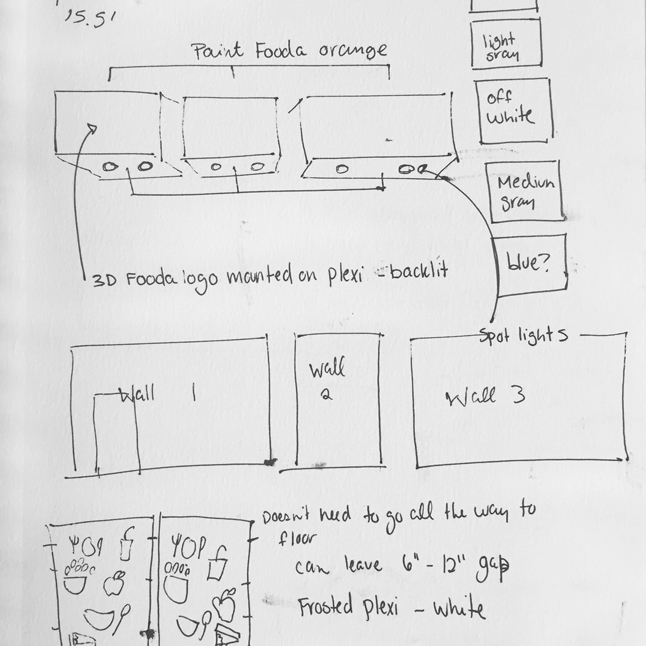 15.5'
Paint Fooda orange
light
gray
off
white
Medium
gray
blue?
3D Fooda logo mounted on plexi - backlit
Spot lights
Wall 1
Wall
2
Wall 3
Doesn't need to go all the way to
floor
can leave 6" - 12" gap
Frosted plexi - white